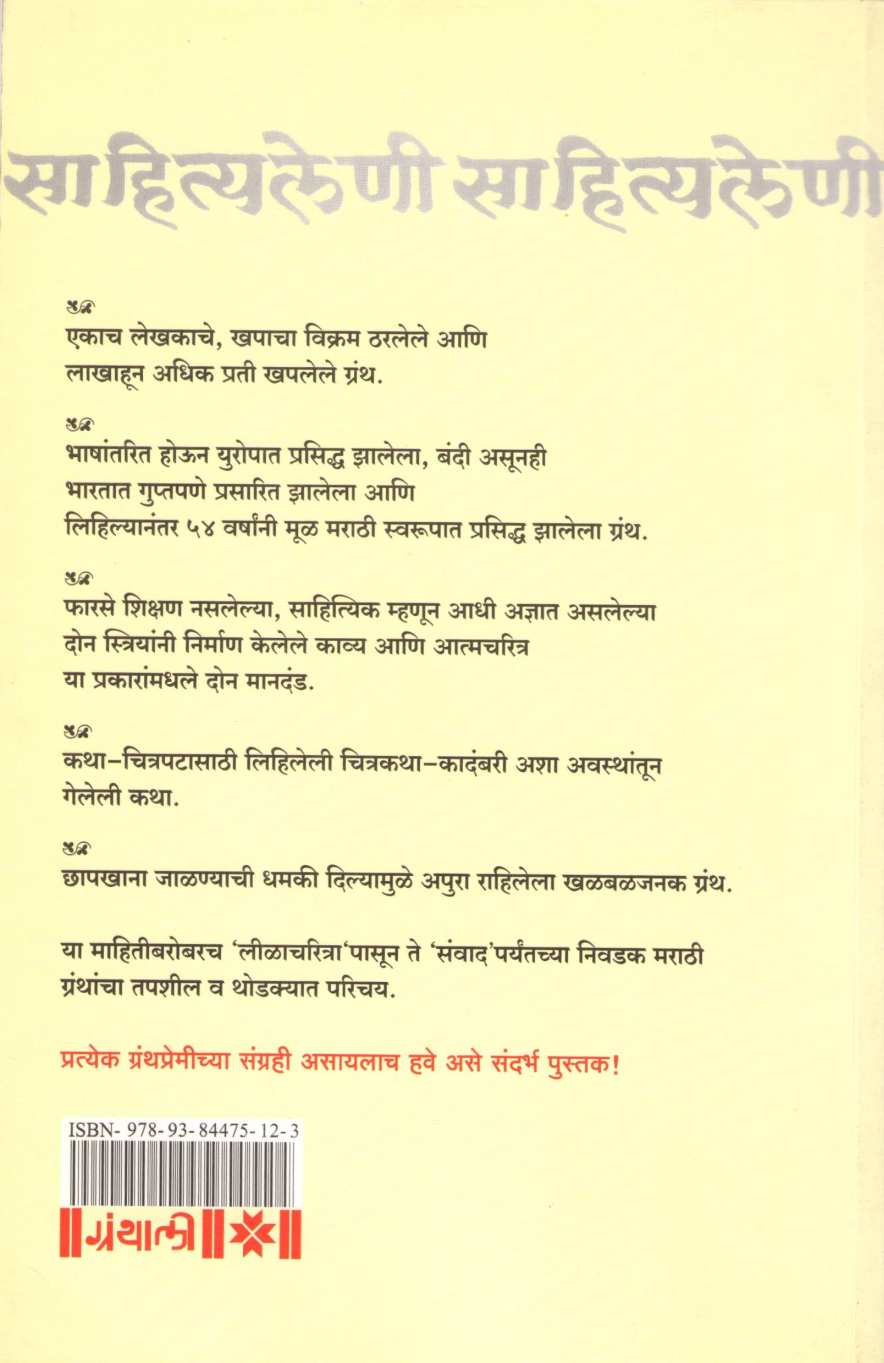 साहित्यलेणी साहित्यलेणी
एकाच लेखकाचे, खपाचा विक्रम ठरलेले आणि
लाखाहून अधिक प्रती खपलेले ग्रंथ.
भाषांतरित होऊन युरोपात प्रसिद्ध झालेला, बंदी असूनही
भारतात गुप्तपणे प्रसारित झालेला आणि
लिहिल्यानंतर ५४ वर्षांनी मूळ मराठी स्वरूपात प्रसिद्ध झालेला ग्रंथ.
फारसे शिक्षण नसलेल्या, साहित्यिक म्हणून आधी अज्ञात असलेल्या
दोन स्त्रियांनी निर्माण केलेले काव्य आणि आत्मचरित्र
या प्रकारांमधले दोन मानदंड.
कथा-चित्रपटासाठी लिहिलेली चित्रकथा-कादंबरी अशा अवस्थांतून
गेलेली कथा.
छापखाना जाळण्याची धमकी दिल्यामुळे अपुरा राहिलेला खळबळजनक ग्रंथ.
या माहितीबरोबरच ‘लीळाचरित्रा‘पासून ते ‘संवाद’पर्यंतच्या निवडक मराठी
ग्रंथांचा तपशील व थोडक्यात परिचय.
प्रत्येक ग्रंथप्रेमीच्या संग्रही असायलाच हवे असे संदर्भ पुस्तक!
ISBN- 978-93-84475-12-3
॥ग्रंथाली॥